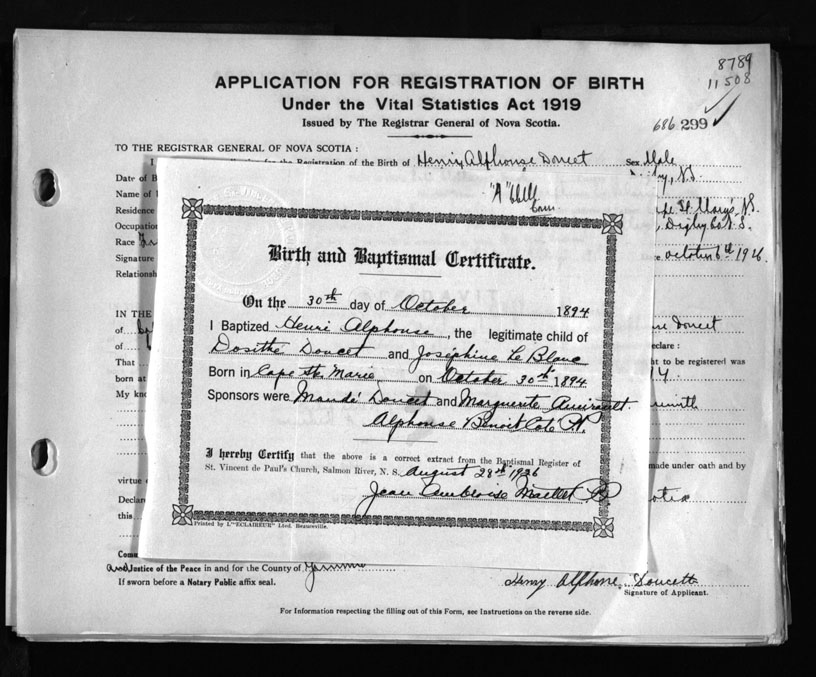 8789
11508
APPLICATION FOR REGISTRATION OF BIRTH
Under the Vital Statistics Act 1919
Issued by The Registrar General of Nova Scotia.
686 299
TO THE REGISTRAR GENERAL OF NOVA SCOTIA :
I Registration of the Birth of Henry Alphonse Doucet Sex Male
Date of B N.S.
Name of
Residence St. Mary's, N.S.
Occupation Digby Co N.S.
Race
Signature October 6th 1926
Relationsh
"A"
Birth and Baptismal Certificate.
On the 30th day of October 1894
I Baptized Henri Alphonse, the legitimate child of
Dosithé Doucet and Joséphine Le Blanc
Born in Cape Ste. Marie on October 30th 1894
Sponsors were Mandé Doucet and Marguerite Amirault
Alphonse Benoit Coté
I hereby Certify that the above is a correct extract from the Baptismal Register of
St. Vincent de Paul's Church, Salmon River, N. S. August 28th 1926
Jean Ambroise
Printed by L'"ECLAIREUR" Lted. Beauceville.
IN THE Doucet
of declare :
of t to be registered was
That 14
born at
My kno
made under oath and by
virtue
Declare otia
this
Com
and Justice of the Peace in and for the County of
If sworn before a Notary Public affix seal.
Henry Alphonse Doucett
Signature of Applicant.
For Information respecting the filling out of this Form, see Instructions on the reverse side.